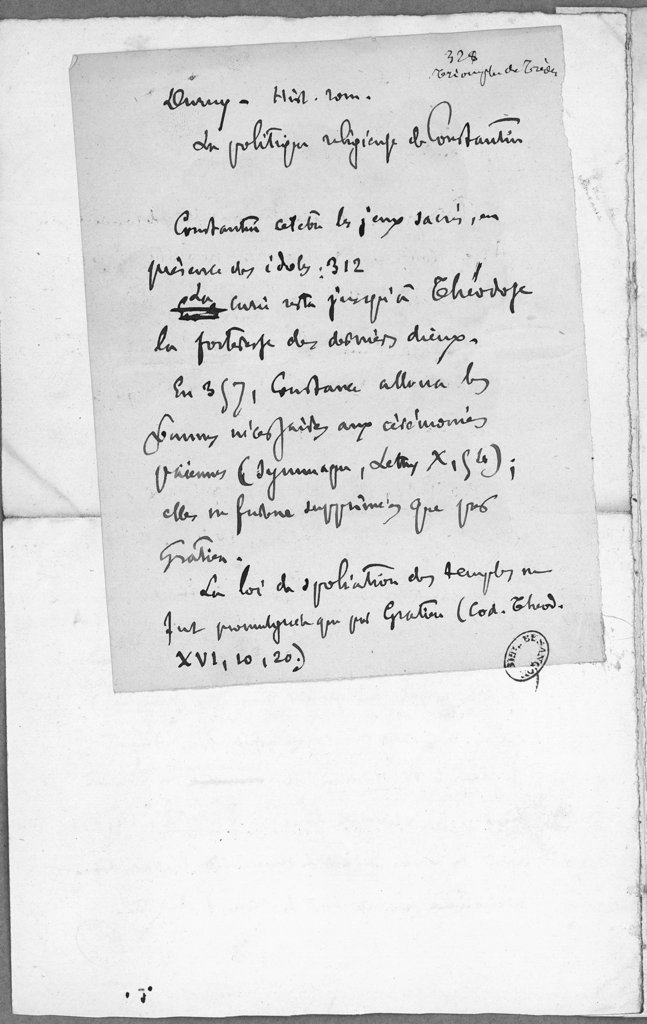 328
Triomphe de Trèves
Duruy - Hist. rom.
La politique religieuse de Constantin
Constantin célébra les jeux sacrés, en
présence des idoles : 312
La curie resta jusqu'à Théodose
la forteresse des derniers dieux.
En 357, Constance alloua les
sommes nécessaires aux cérémonies
païennes (Symmaque, Lettres X, 54) ;
elles ne furent supprimées que par
Gratien.
La loi de spoliation des temples ne
fut promulguée que par Gratien (Cod. Theod.
XVI, 10, 20.)
BIBL. BESANÇON